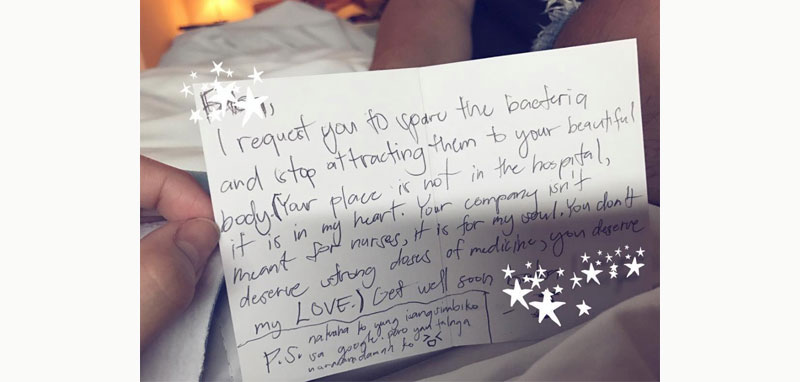 I request you to spare the bacteria
and stop attracting them to your beautiful
body. (Your place is not in the hospital,
it is in my heart. Your company isn't
meant for nurses, it is for my soul. You don't
deserve strong doses of medicine, you deserve
my LOVE.) Get well soon
P.S. nakuha ko yung isang sinabi ko
sa google. pero yan talaga
nararamdaman ko